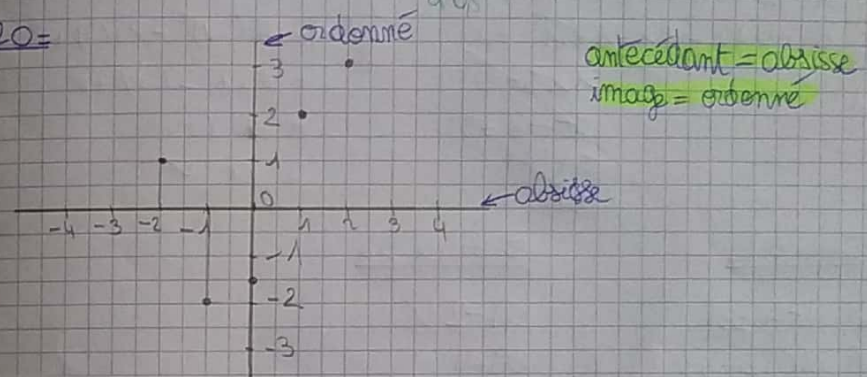 20=
← ordonné
antecédant = absisse
image = ordonné
3
2
1
0
← absisse
-4 -3 -2 -1 1 2 3 4
-1
-2
-3